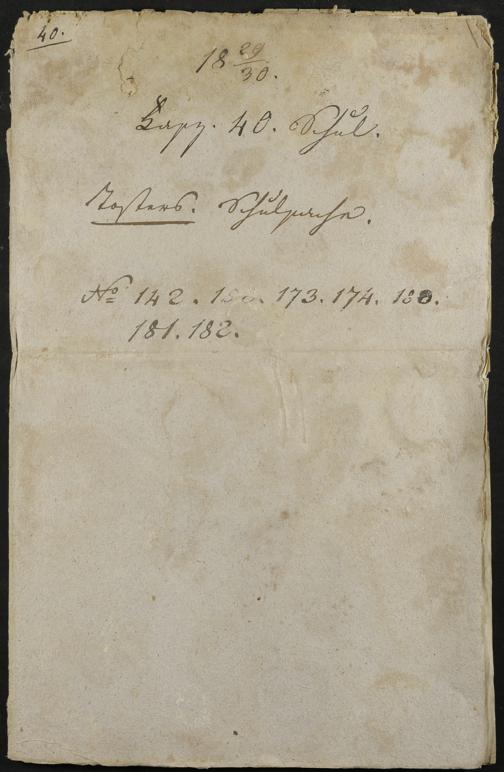 40.
18 29/30.
Kapz. 40. Schul.
Tosters. Schulsache.
No 142. 173. 174. 180.
181. 182.